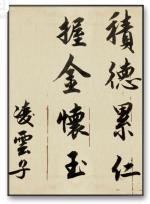 積德累仁
握金懷玉
凌雲子